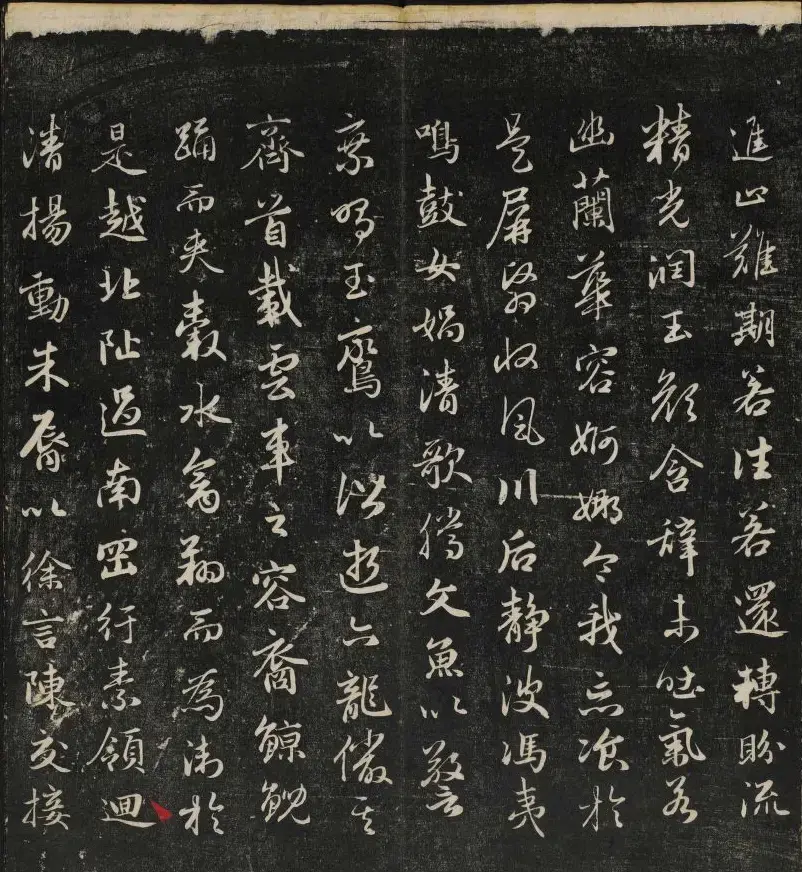 進止難期若往若還轉盼流
精光潤玉顏含辭未吐氣若
幽蘭華容婀娜令我忘飡於
是屏翳收風川后靜波馮夷
鳴鼓女媧清歌騰文魚以警
乘鳴玉鸞以偕逝六龍儼其
齊首載雲車之容裔鯨鯢
踊而夾轂水禽翔而為衛於
是越北阯過南岡行素領迴
清揚動朱脣以徐言陳交接